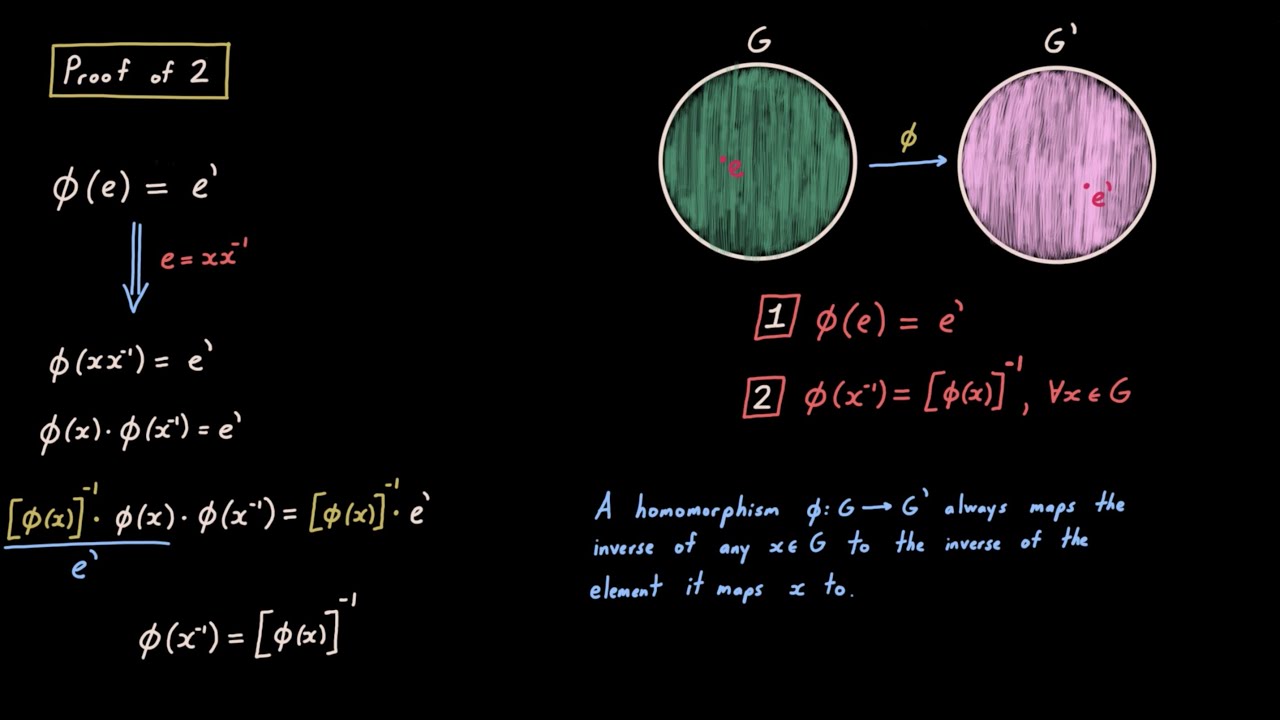 Proof of 2
ϕ(e) = e`
e = xx⁻¹
ϕ(xx⁻¹) = e`
ϕ(x)·ϕ(x⁻¹) = e`
[ϕ(x)]⁻¹· ϕ(x)·ϕ(x⁻¹) = [ϕ(x)]⁻¹· e`
e`
ϕ(x⁻¹) = [ϕ(x)]⁻¹
G
G`
ϕ
e
e`
1 ϕ(e) = e`
2 ϕ(x⁻¹) = [ϕ(x)]⁻¹, ∀x ∈ G
A homomorphism ϕ: G → G` always maps the
inverse of any x ∈ G to the inverse of the
element it maps x to.